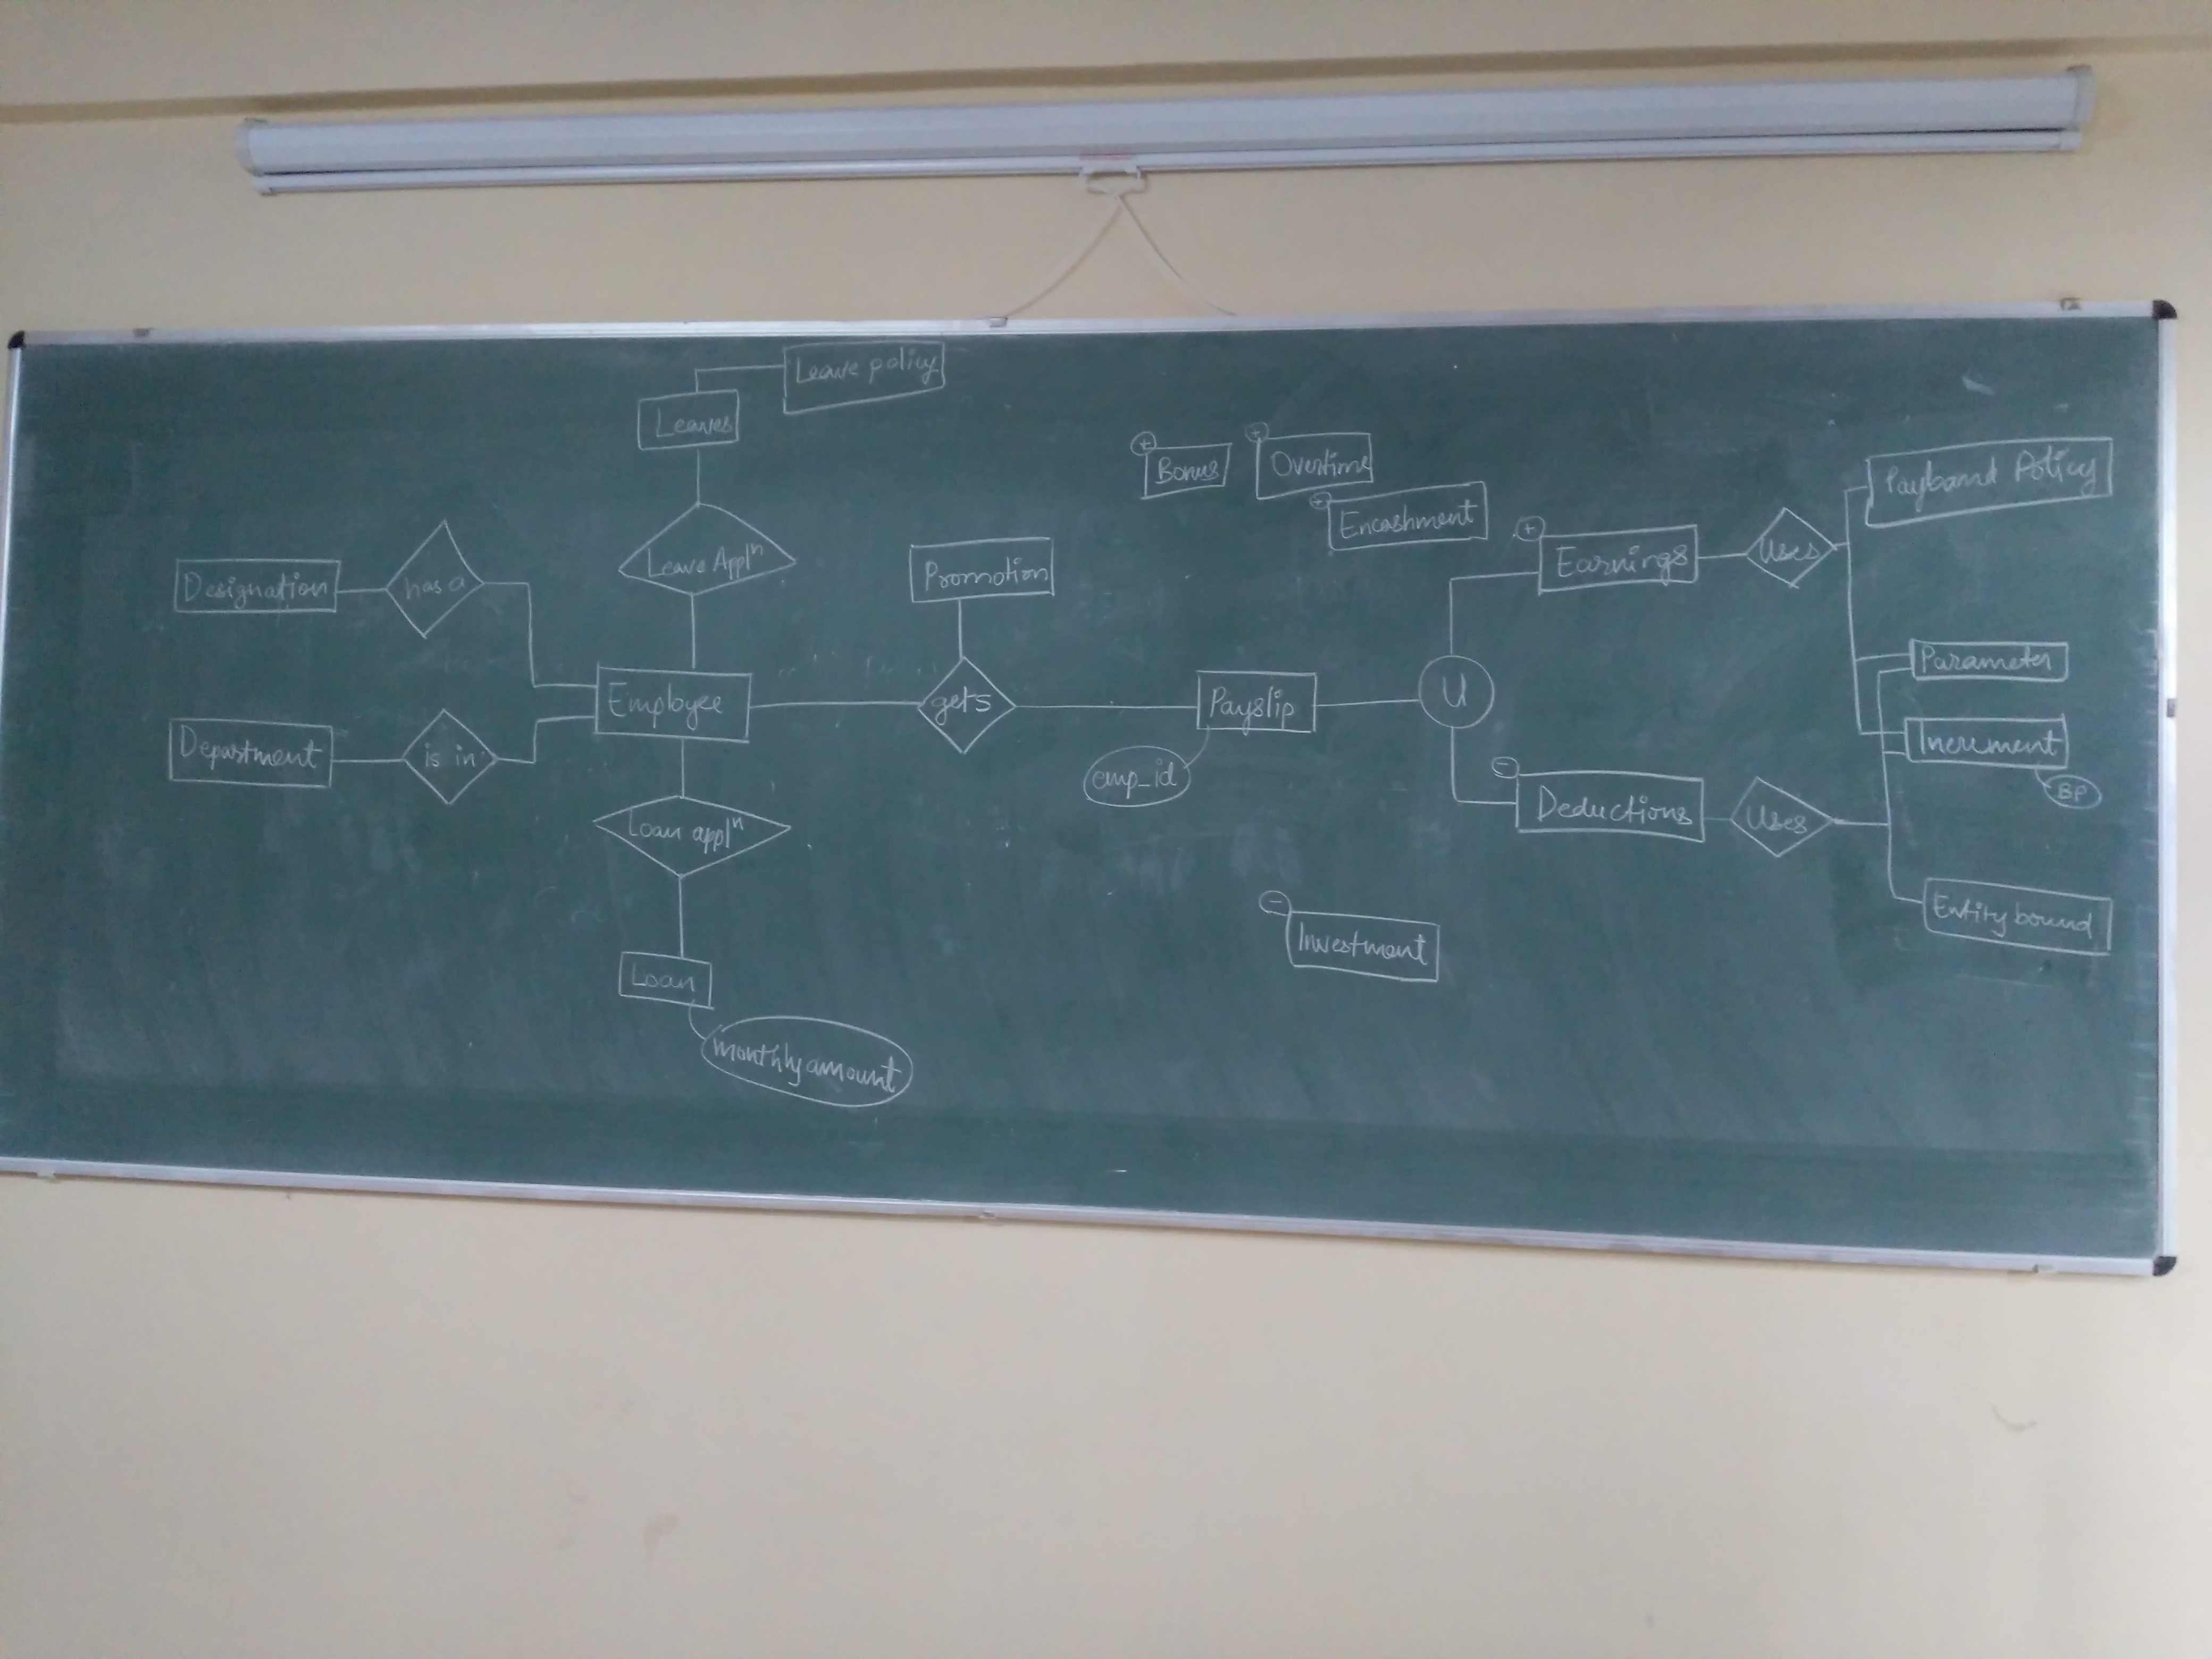 Leave policy
Leaves
Leave Applⁿ
Designation
has a
Department
is in
Employee
Loan applⁿ
Loan
monthly amount
Promotion
gets
Payslip
emp_id
+
Bonus
+
Overtime
+
Encashment
U
+
Earnings
Uses
Payband Policy
Parameter
Increment
BP
-
Deductions
Uses
Entity bound
-
Investment